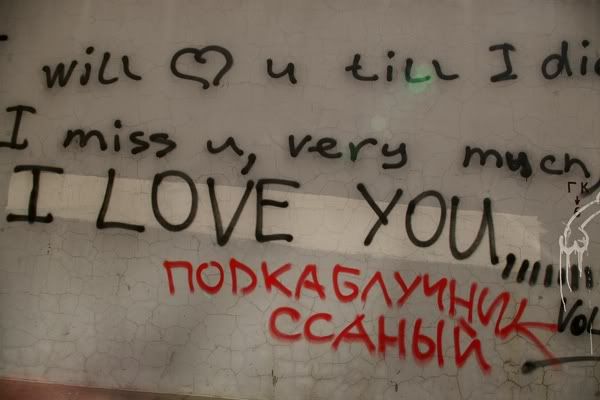 I will ♡ u till I die
I miss u, very much,
I LOVE YOU,,,,,,,
ГК
ПОДКАБЛУЧНИК
ССАНЫЙ